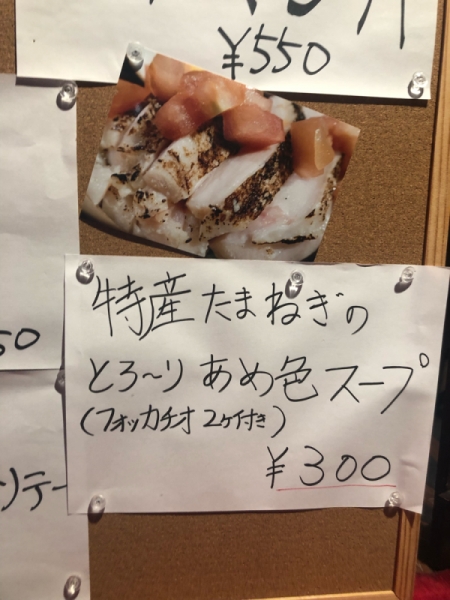 ¥550
50
特産たまねぎの
とろ〜り あめ色スープ
(フォッカチオ 2ケ付き)
¥300
ンテー